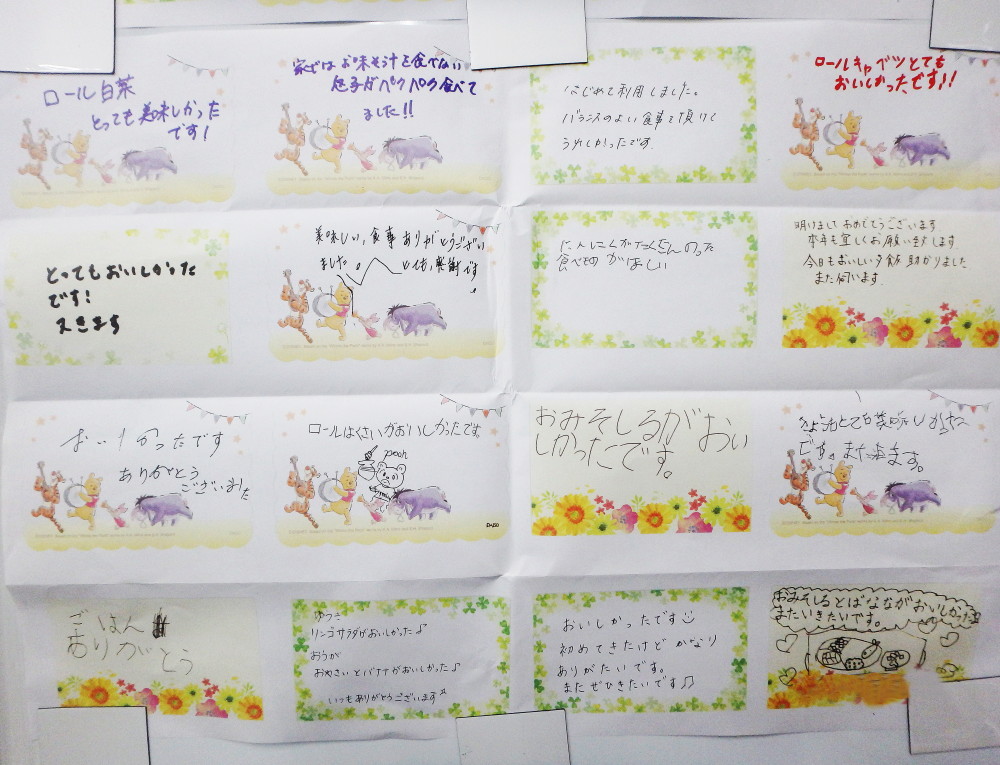 ロール白菜
とっても美味しかった
です!
家ではお味そ汁を食べない
息子がパクパク食べて
ました!!
はじめて利用しました。
バランスのよい食事を頂けて
うれしかったです.
ロールキャベツとても
おいしかったです!!
とってもおいしかった
です!
又きます
美味しい、食事ありがとうござい
ました。
です
たくさんのった
食べもの がほしい
明けまして おめでとうございます
本年も宜しくお願い致します
今日もおいしい夕飯 助かりました
また伺います.
おいしかったです
ありがとう
ございました
ロールはくさいがおいしかったです。
pooh
おみそしるが おい
しかったです。
きょうもとても美味しかった
です。また来ます。
ごはん
ありがとう
ゆうき
リンゴサラダがおいしかった♪
おうが
おやさいとバナナがおいしかった♪
いつもありがとうございます
おいしかったです
初めてきたけど かなり
ありがたいです。
またぜひきたいです♫
おみそしるとばなながおいしかった
またいきたいです。